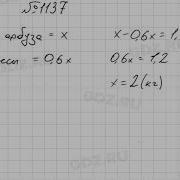 №1137
арбуза = x x-0,6x=1,
= 0,6x 0,6x = 1,2
x = 2 (кг)
GDZ.RU